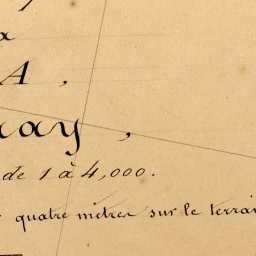 A,
ay,
de 1 à 4,000.
quatre mètres sur le terrai